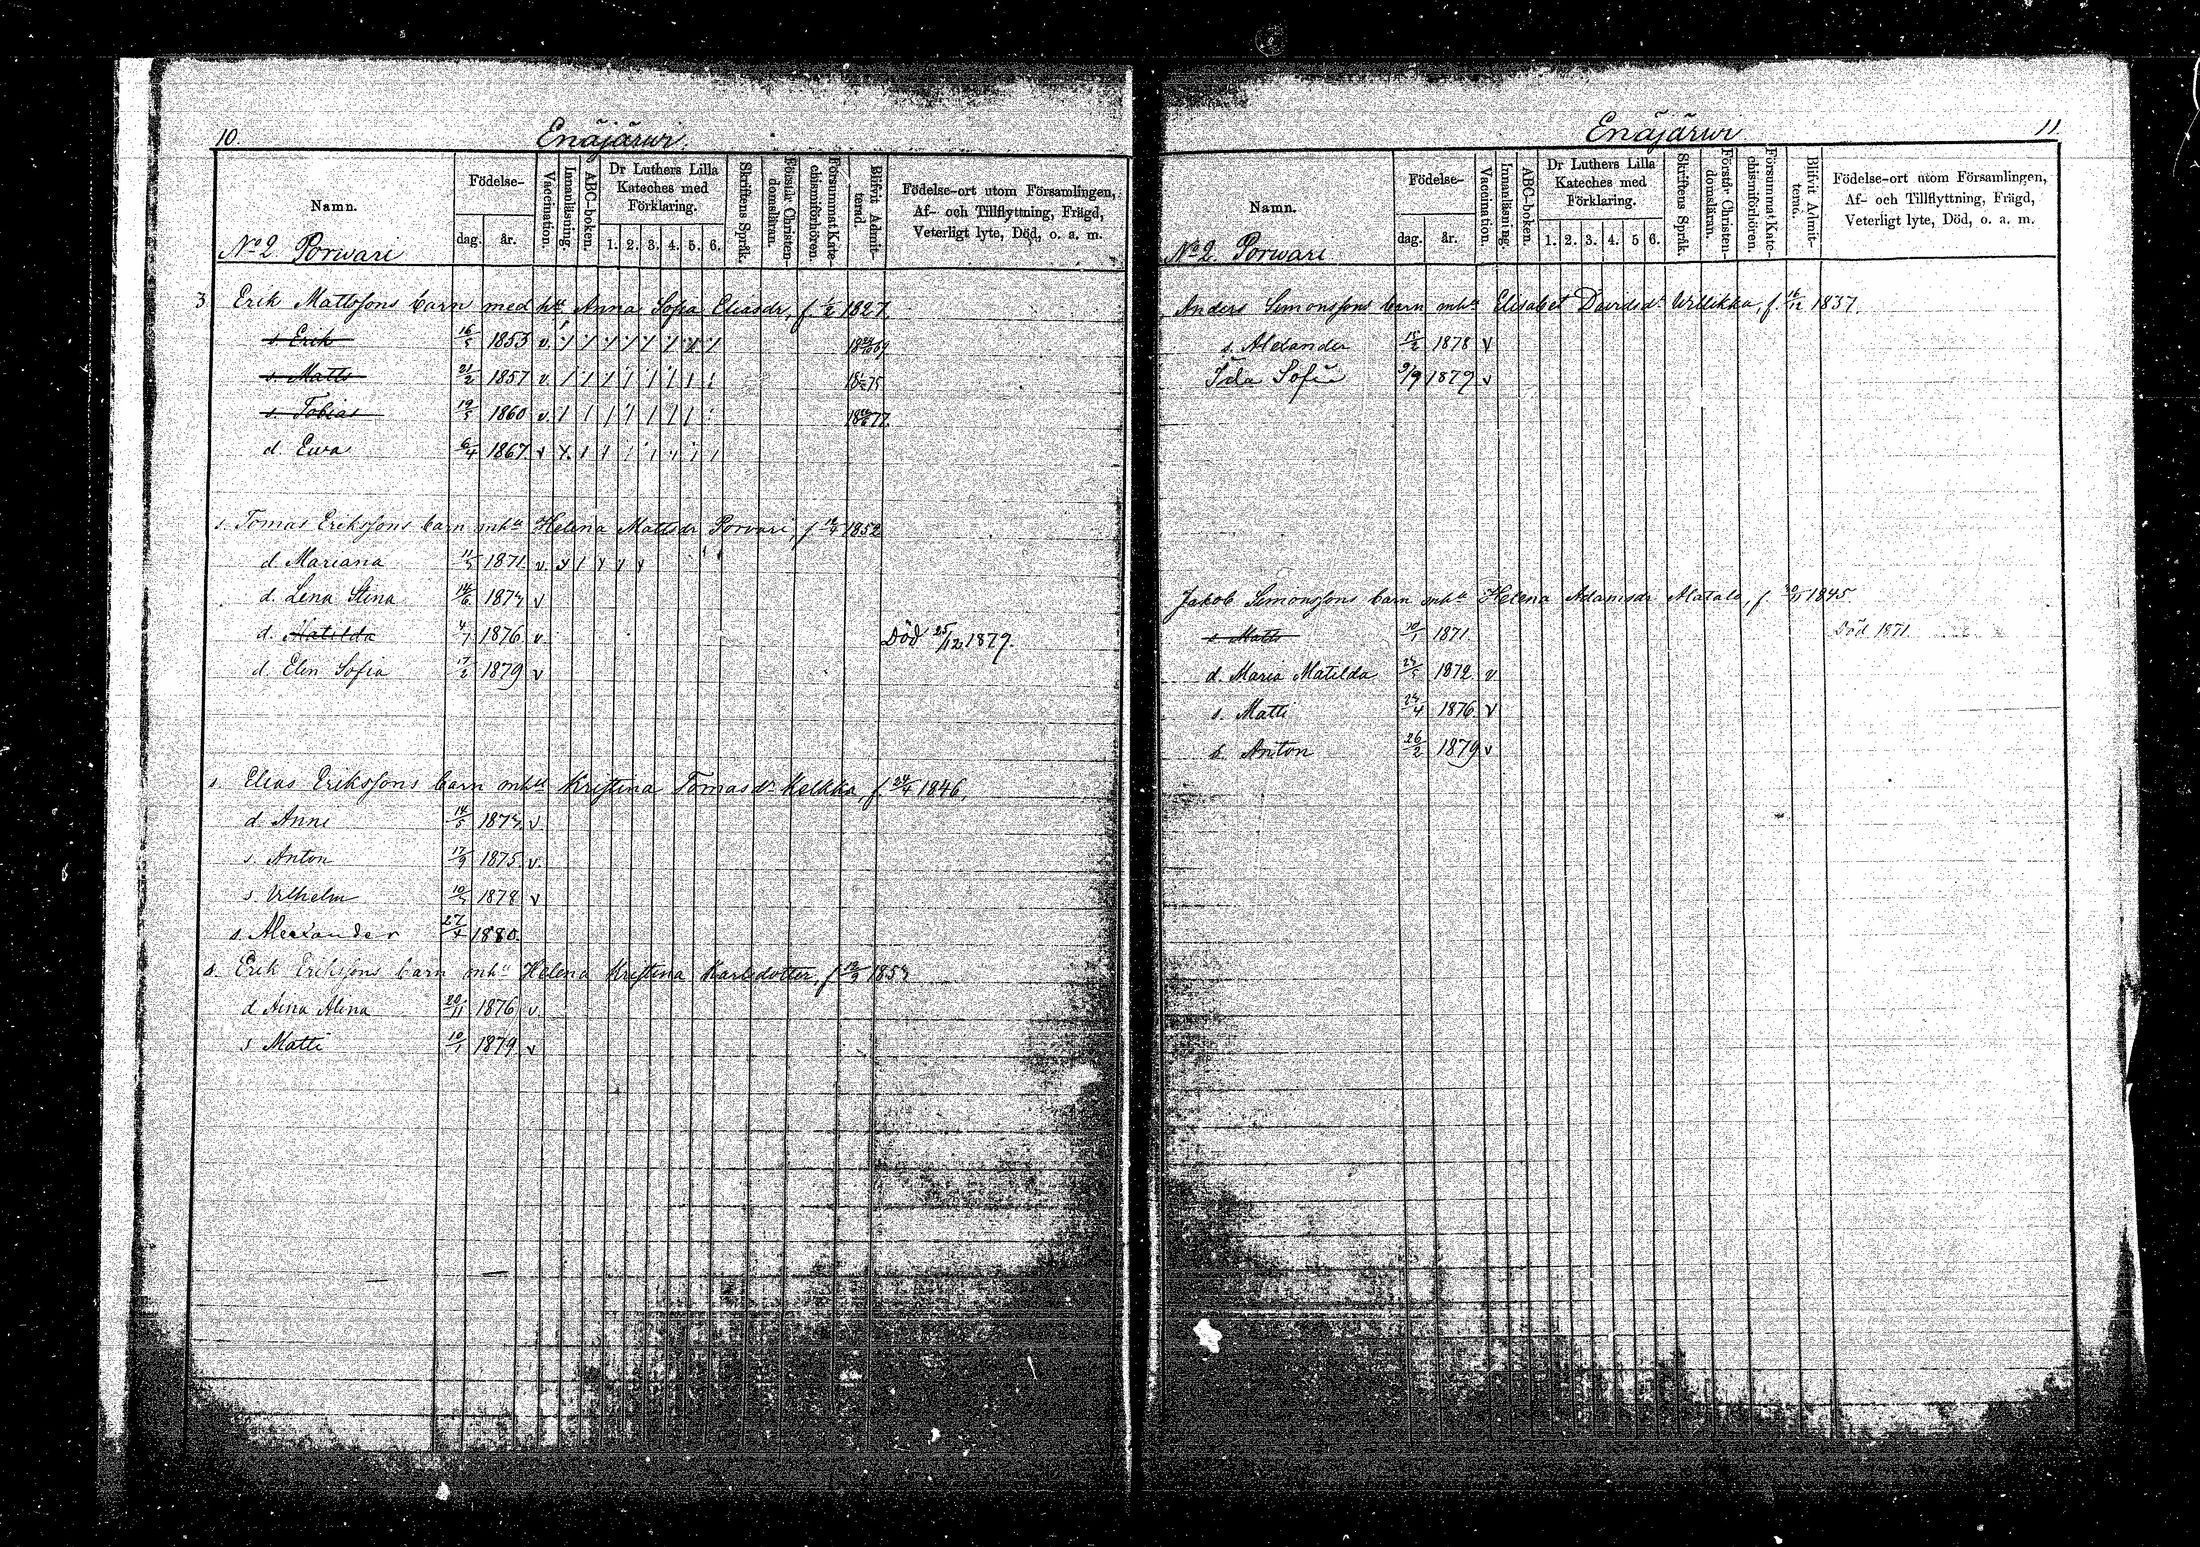 10.
Enäjärwi
Namn.
Födelse-
dag. år.
Vaccination.
Innanläsning.
ABC-boken.
Dr Luthers Lilla Kateches med Förklaring.
1. 2. 3. 4. 5. 6.
Skriftens Språk.
Förstår Christendomsläran.
Försummat Katechismiförhören.
Blifvit Admitterad.
Födelse-ort utom Församlingen, Af- och Tillflyttning, Frägd, Veterligt lyte, Död, o. a. m.
No 2 Porwari
3 Erik Mattssons barn med hu Anna Sofia Eliasdr, f. 1/2 1827.
s. Erik 16/5 1853 v.
s. Matts 21/2 1857 v
s. Tobias 1860 v.
d. Ewa 6/4 1867 v
s. Tomas Erikssons barn mhu Helena Mattsdr Porvari, f 1852
d. Mariana 1871 v.
d. Lena Stina 1874 v
d. Matilda 4/1 1876 v. Död 25/12 1879.
d. Elin Sofia 17/2 1879 v
s. Elias Erikssons barn mhu Kristina Tomasdr Kelkka, f. 24/4 1846.
d. Anni 14/5 1874 v
s. Anton 17/9 1875 v.
s. Vilhelm 1878 v
s. Alexander 27/4 1880.
s. Erik Erikssons barn mhu Helena Kristina Karlsdotter, f
d Aina Alina 20/11 1876 v.
s Matti 10/1 1879 v
Enäjärwi
11.
Namn.
Födelse-
dag. år.
Vaccination.
Innanläsning.
ABC-boken.
Dr Luthers Lilla Kateches med Förklaring.
1. 2. 3. 4. 5 6.
Skriftens Språk.
Förstår Christendomsläran.
Försummat Katechismförhören.
Blifvit Admitterad.
Födelse-ort utom Församlingen, Af- och Tillflyttning, Frägd, Veterligt lyte, Död, o. a. m.
No 2. Porwari
Anders Simonssons barn mhu Elisabet Davidsdr Willikka, f. 16/12 1837.
s. Alexander 15/2 1878 v
Ida Sofia 9/9 1879 v
Jakob Simonssons barn mhu Helena Adamsdr Alatalo, f. 1845.
s. Matts 10/1 1871 Död 1871
d. Maria Matilda 1872 v
s. Matti 24/4 1876 v
s. Anton 26/2 1879 v